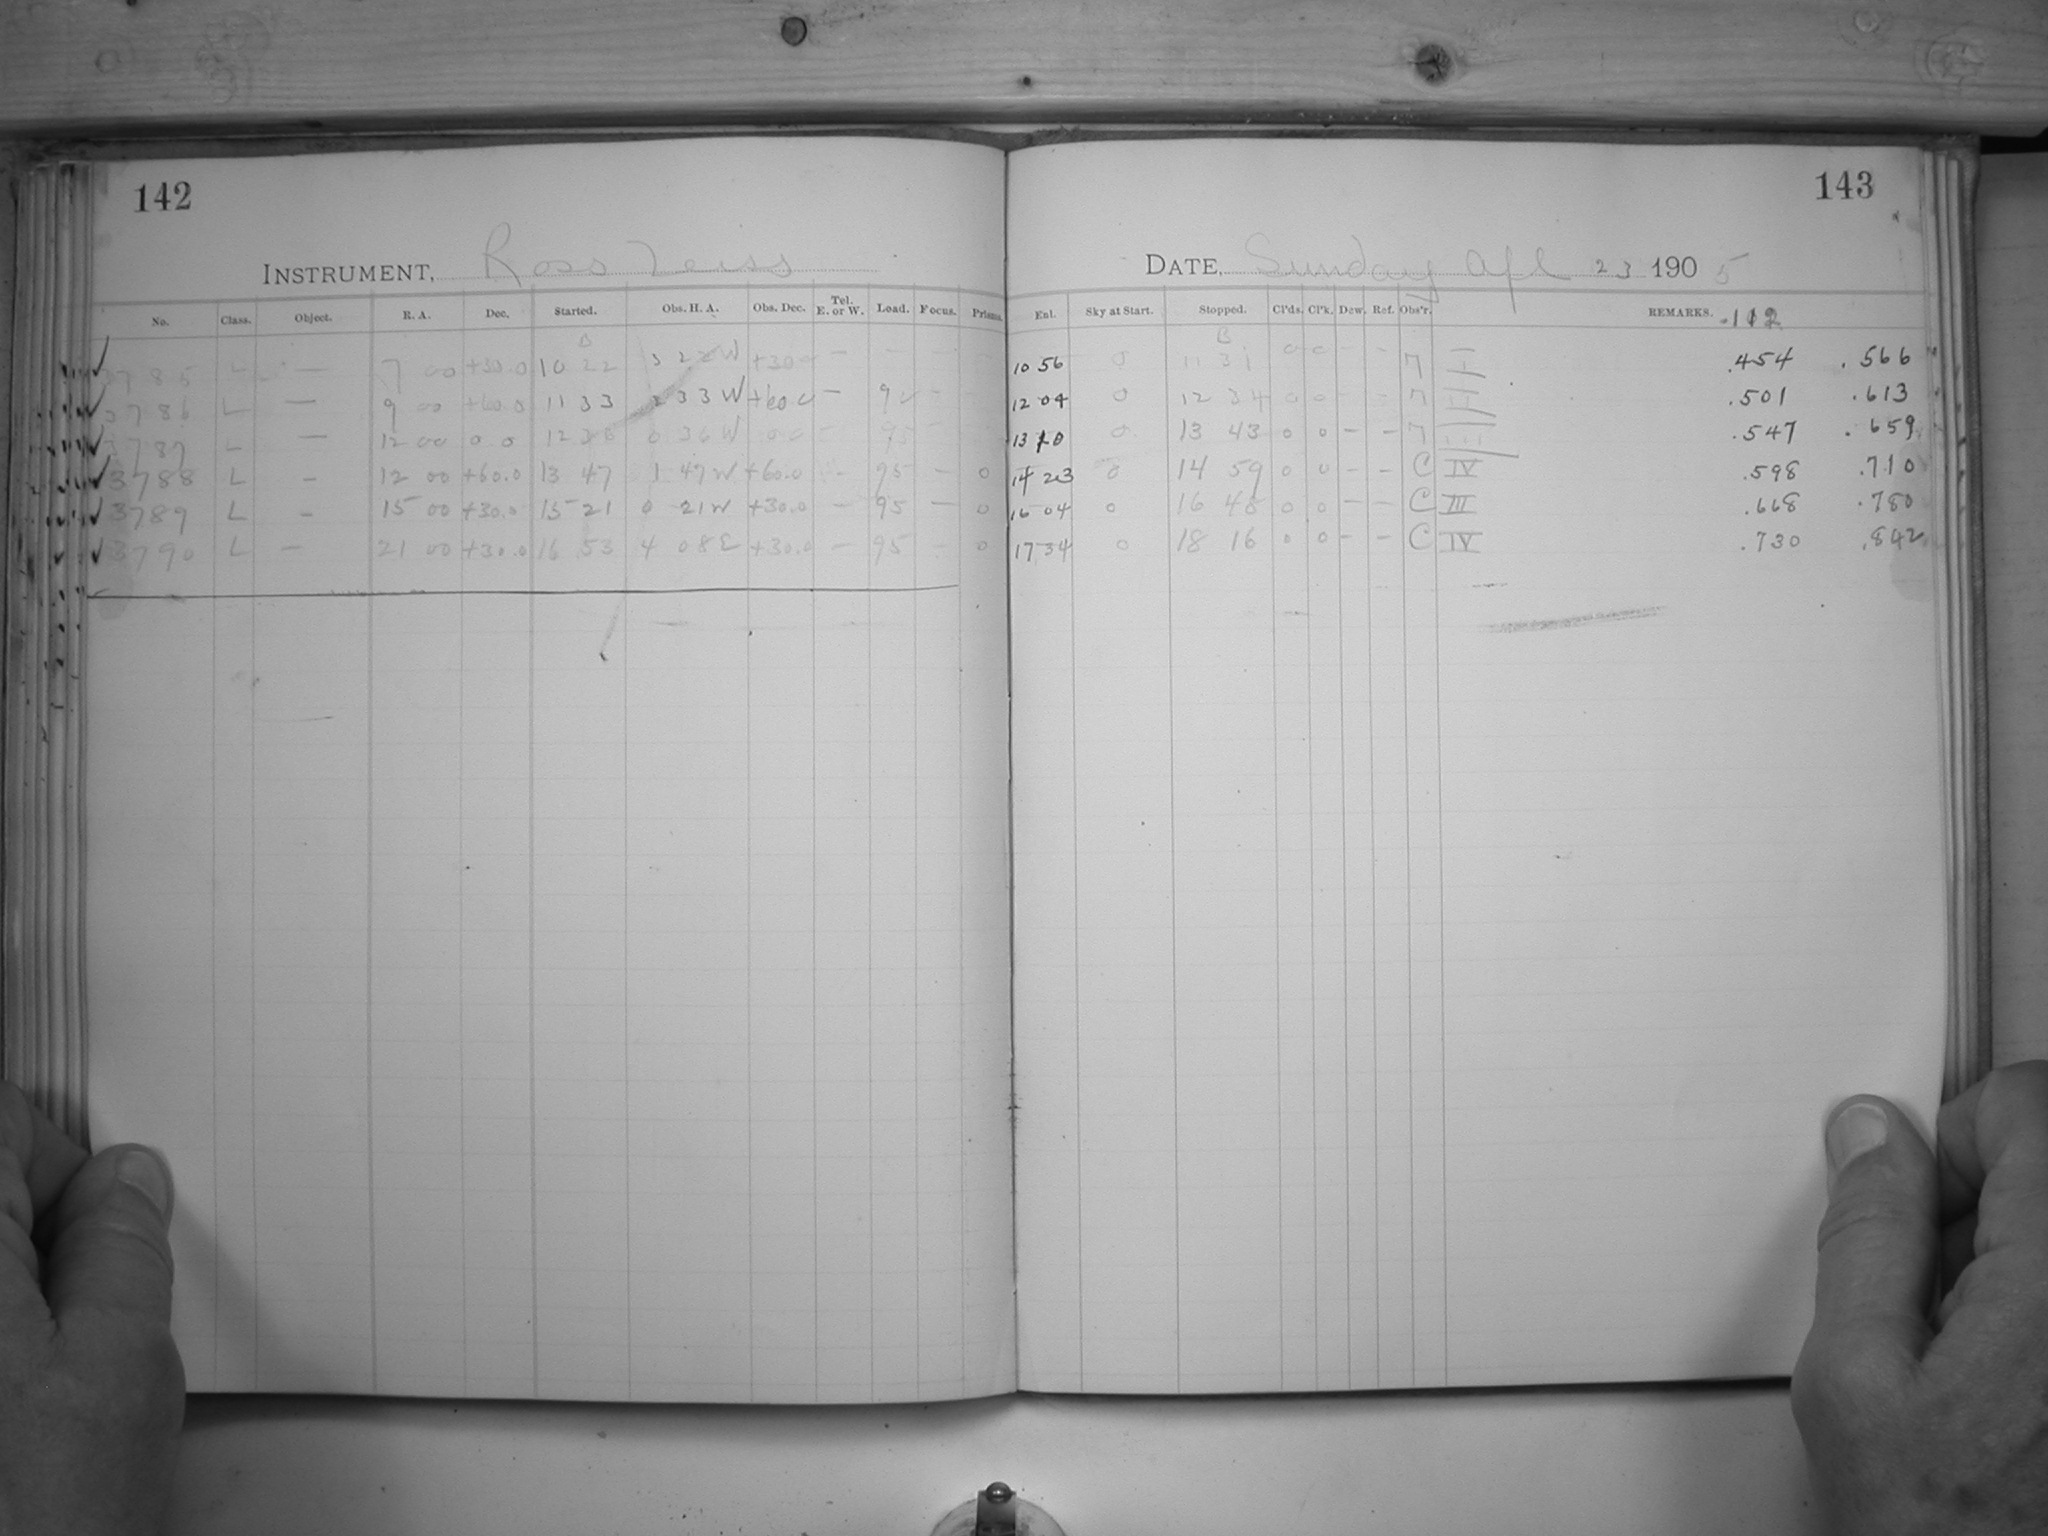 142
INSTRUMENT, Ross Zeiss
No. Class. Object. R. A. Dec. Started. Obs. H. A. Obs. Dec. Tel. E. or W. Load. Focus. Prisms.
3785 L — 7 00 +30.0 10 22 3 22 W +30.0 — — — —
3786 L — 9 00 +60.0 11 33 2 33 W +60.0 —
3787 L — 12 00 0.0 12 36 0 36 W 0.0 — 95 —
3788 L — 12 00 +60.0 13 47 1 47 W +60.0 — 95 — 0
3789 L — 15 00 +30.0 15 21 0 21 W +30.0 — 95 — 0
3790 L — 21 00 +30.0 16 53 4 08 E +30.0 — 95 — 0
143
DATE, Sunday Apl 23 1905
Enl. Sky at Start. Stopped. Cl'ds. Cl'k. Dew. Ref. Obs'r. REMARKS. .112
10 56 0 11 31 0 0 — — I .454 .566
12 04 0 12 34 0 0 — — II .501 .613
13 10 0 13 43 0 0 — — III .547 .659
14 23 0 14 59 0 0 — — C IV .598 .710
16 04 0 16 48 0 0 — — C III .668 .780
17 34 0 18 16 0 0 — — C IV .730 .842